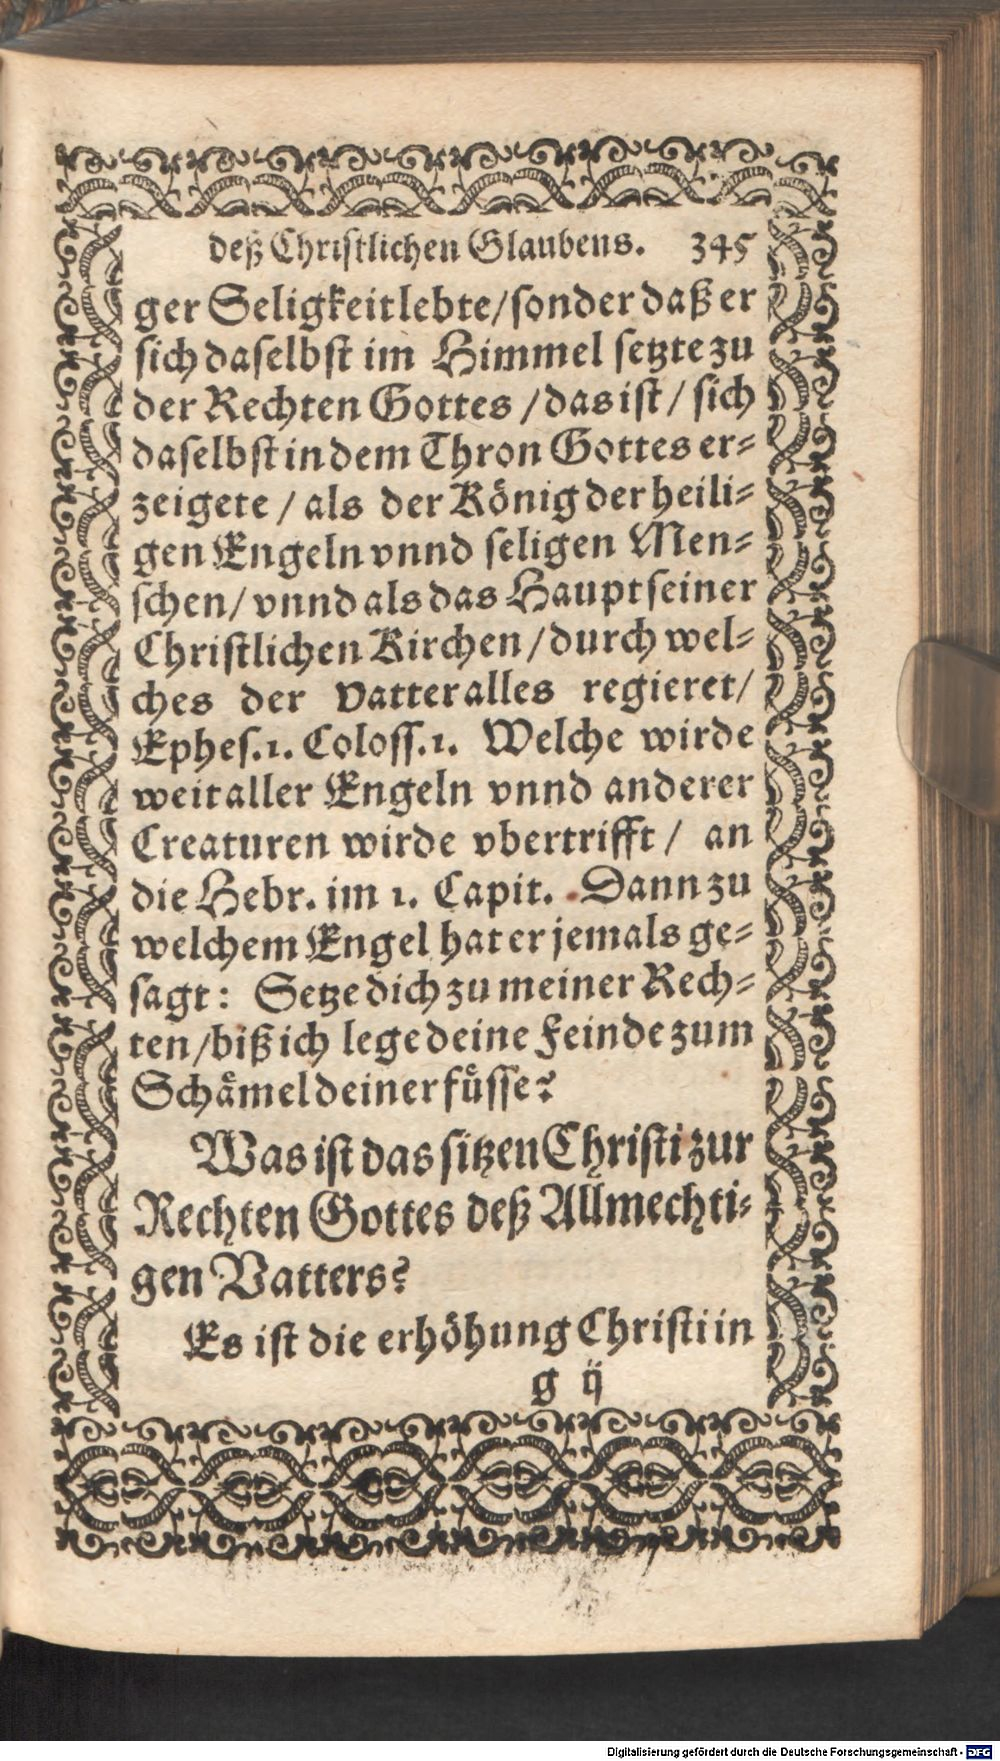 deß Christlichen Glaubens. 345
ger Seligkeit lebte/ sonder daß er
sich daselbst im Himmel setzte zu
der Rechten Gottes / das ist / sich
daselbst in dem Thron Gottes er⸗
zeigete / als der König der heili⸗
gen Engeln vnnd seligen Men⸗
schen/ vnnd als das Haupt seiner
Christlichen Kirchen / durch wel⸗
ches der Vatter alles regieret/
Ephes. 1. Coloss. 1. Welche wirde
weit aller Engeln vnnd anderer
Creaturen wirde vbertrifft / an
die Hebr. im 1. Capit. Dann zu
welchem Engel hat er jemals ge⸗
sagt: Setze dich zu meiner Rech⸗
ten / biß ich lege deine Feinde zum
Schaͤmel deiner fuͤsse?
Was ist das sitzen Christi zur
Rechten Gottes deß Allmechti⸗
gen Vatters?
Es ist die erhöhung Christi in
g ij
Digitalisierung gefördert durch die Deutsche Forschungsgemeinschaft - DFG